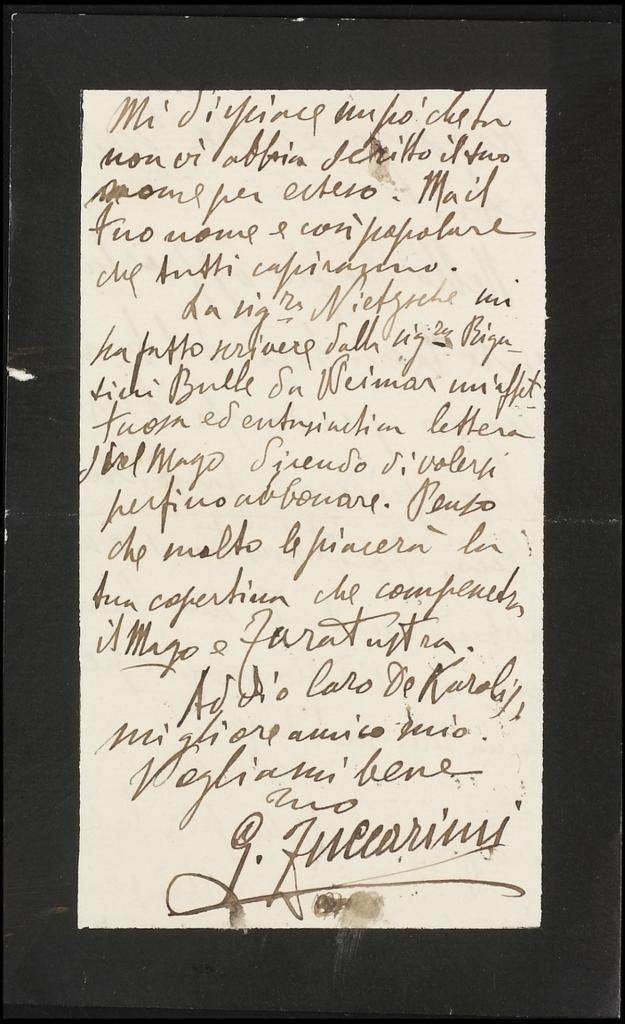 Mi dispiace un pó che tu
non vi abbia scritto il tuo
nome per esteso. Ma il
tuo nome e così popolare
che tutti capiranno.
La sig.ra Nietzsche mi
ha fatto scrivere dalla sig.ra Riga-
tini Bulle da Weimar un'affet-
tuosa ed entusiastica lettera
del Mago dicendo di volersi
perfino abbonare. Penso
che molto le piacerà la
tua copertina che compenetra
il Mago e Zaratustra.
Addio Caro De Karolis,
migliore amico mio.
Vogliami bene
tuo
G. Zuccarini